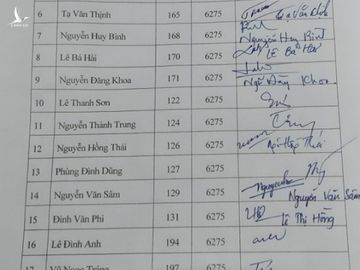 6 Tạ Văn Thịnh 165 6275 Tạ Văn Thịnh
7 Nguyễn Huy Bình 168 6275 Nguyễn Huy Bình
8 Lê Bá Hải 170 6275 Lê Bá Hải
9 Nguyễn Đăng Khoa 171 6275 Ngũ Đăng Khoa
10 Lê Thanh Sơn 122 6275
11 Nguyễn Thành Trung 124 6275
12 Nguyễn Hồng Thái 126 6275
13 Phùng Đình Dũng 127 6275
14 Nguyễn Văn Sâm 129 6275 Nguyễn Văn Sâm
15 Đinh Văn Phi 131 6275 Lê Thị Hồng
16 Lê Đình Anh 194 6275
17 Vũ Ngọc Tráng 197 6275